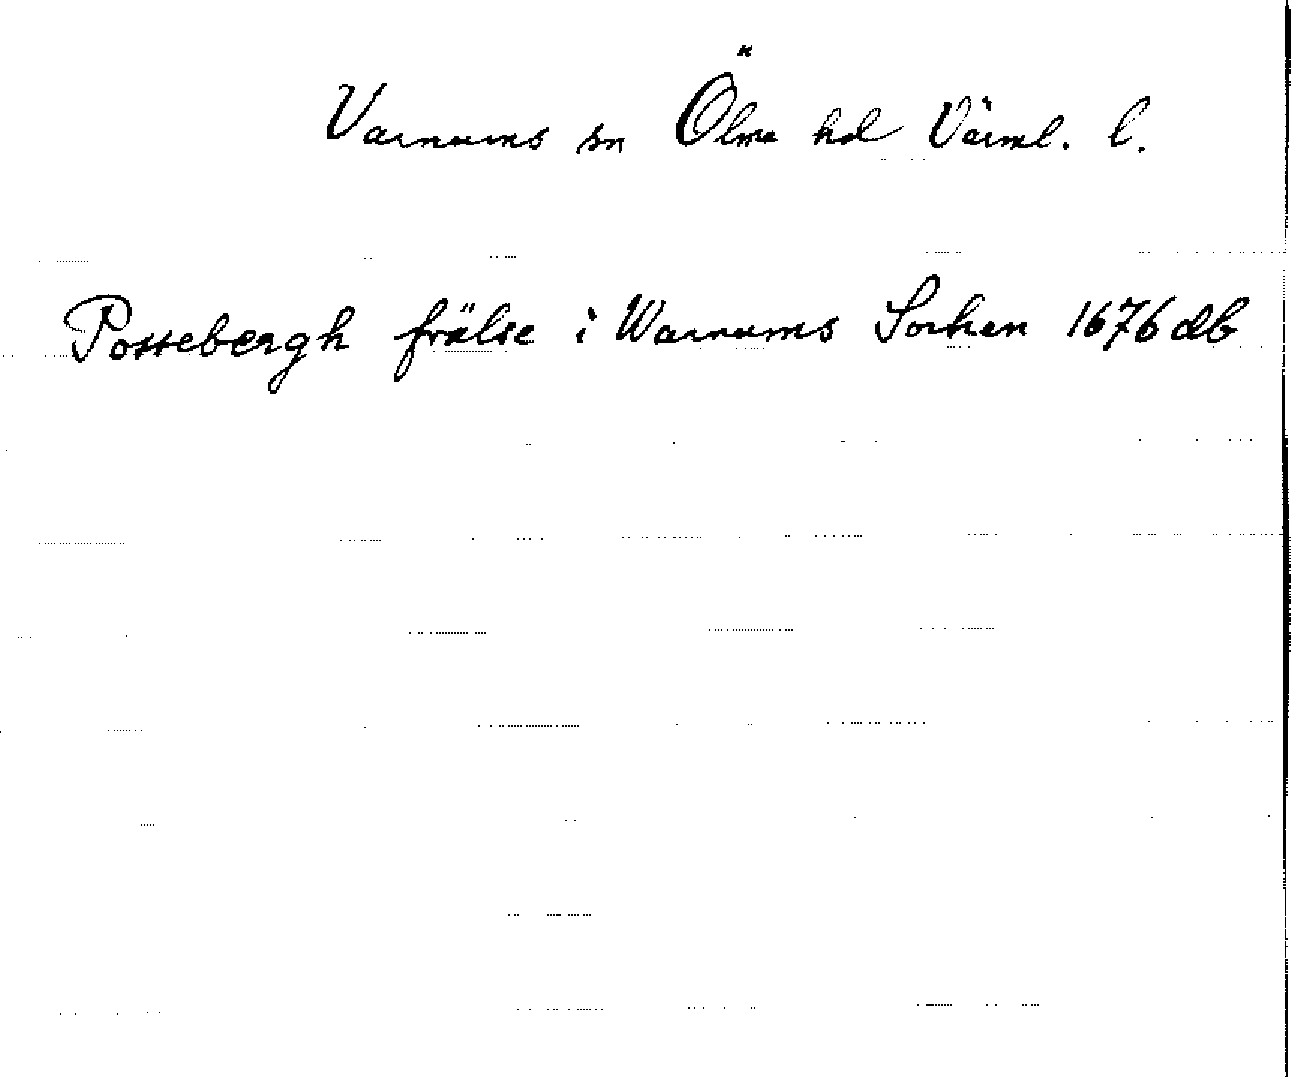 Varnums sn Ölme hd Värml. l.
Possebergh frälse i Warnums Sochen 1676 db